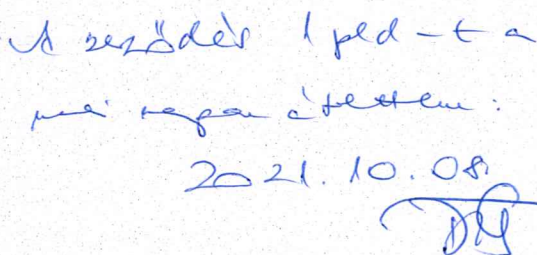 A szeződés 1 pld-t a
mai napon átvettem:
2021.10.08.